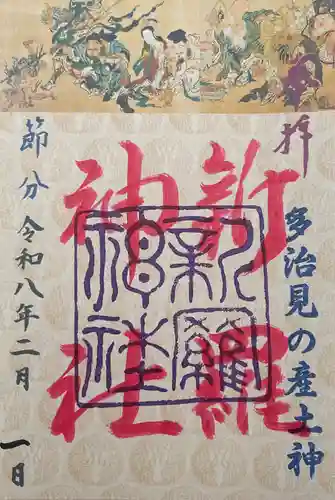 奉拝
多治見の産土神
新羅
神社
新羅
神社
節分 令和八年二月 一日